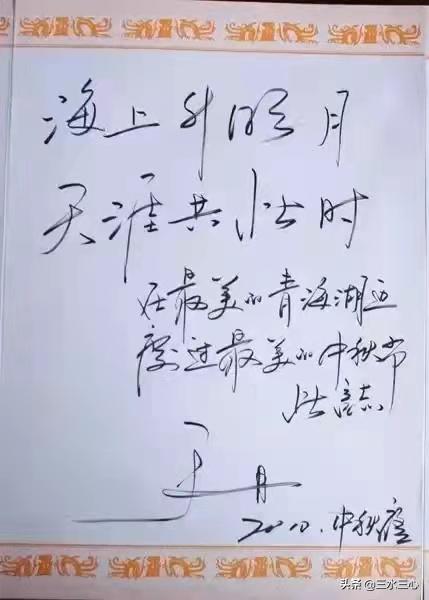 海上升明月
天涯共此时
在最美的青海湖边
度过最美的中秋节
此志
2010.中秋
头条@三水三心